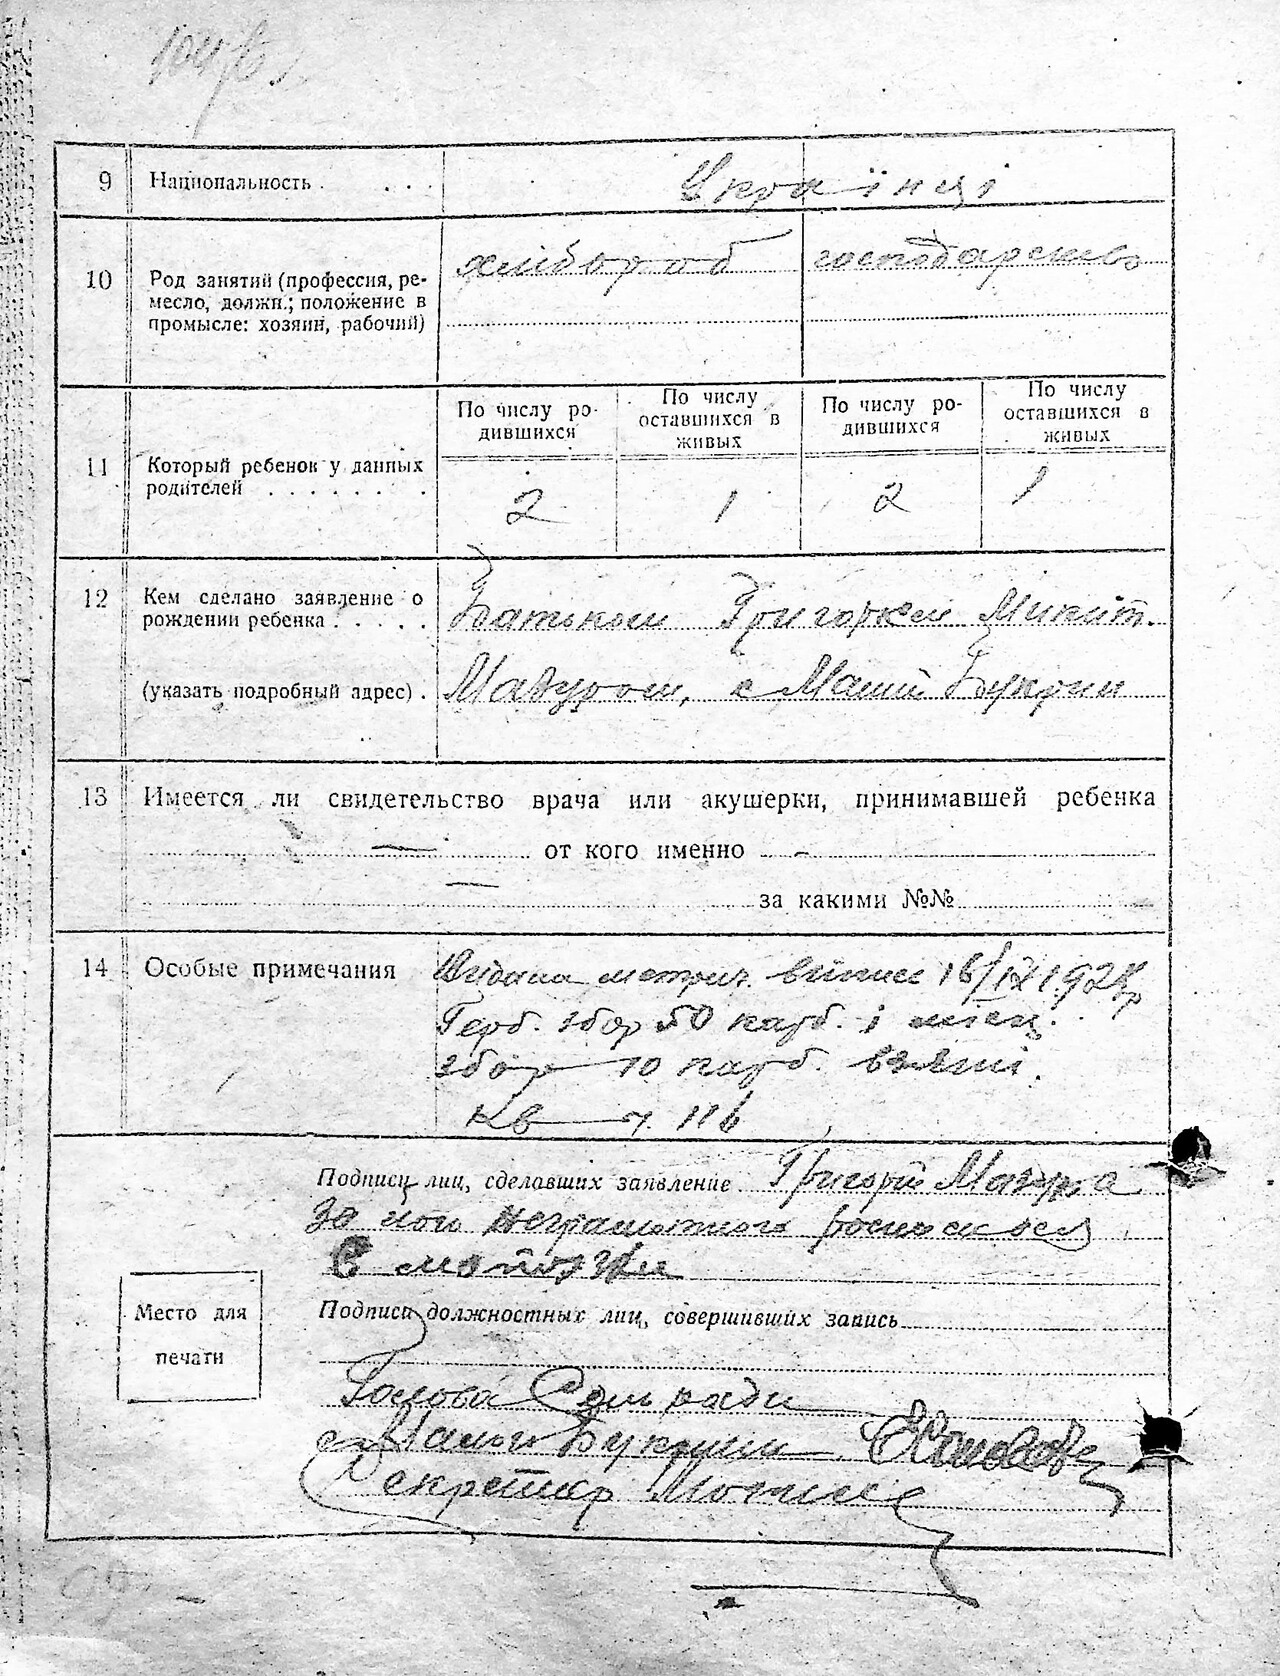 9 Национальность . . . . Українці
10 Род занятий (профессия, ре-
месло, должн.; положение в
промысле: хозяин, рабочий)
хлібороб господарство
По числу ро-
дившихся
По числу
оставшихся в
живых
По числу ро-
дившихся
По числу
оставшихся в
живых
11 Который ребенок у данных
родителей . . . . . . .
2 1 2 1
12 Кем сделано заявление о
рождении ребенка . . . . .
(указать подробный адрес) .
Батьком Григорієм Микит.
Мазуром, с Малий Букрин
13 Имеется ли свидетельство врача или акушерки, принимавшей ребенка
— от кого именно –
— за какими №№
14 Особые примечания
Видана метрич. виписс 16/IX 192
Герб. збор 50 карб. і місц.
збор 10 карб. взяті.
Кв ч. 116
Подписи лиц, сделавших заявление Григорій Мазур
За його неграмотного росписався
Место для
печати
Подписи должностных лиц, совершивших запись
Голова Сельради
с Малого Букрина
Секретар